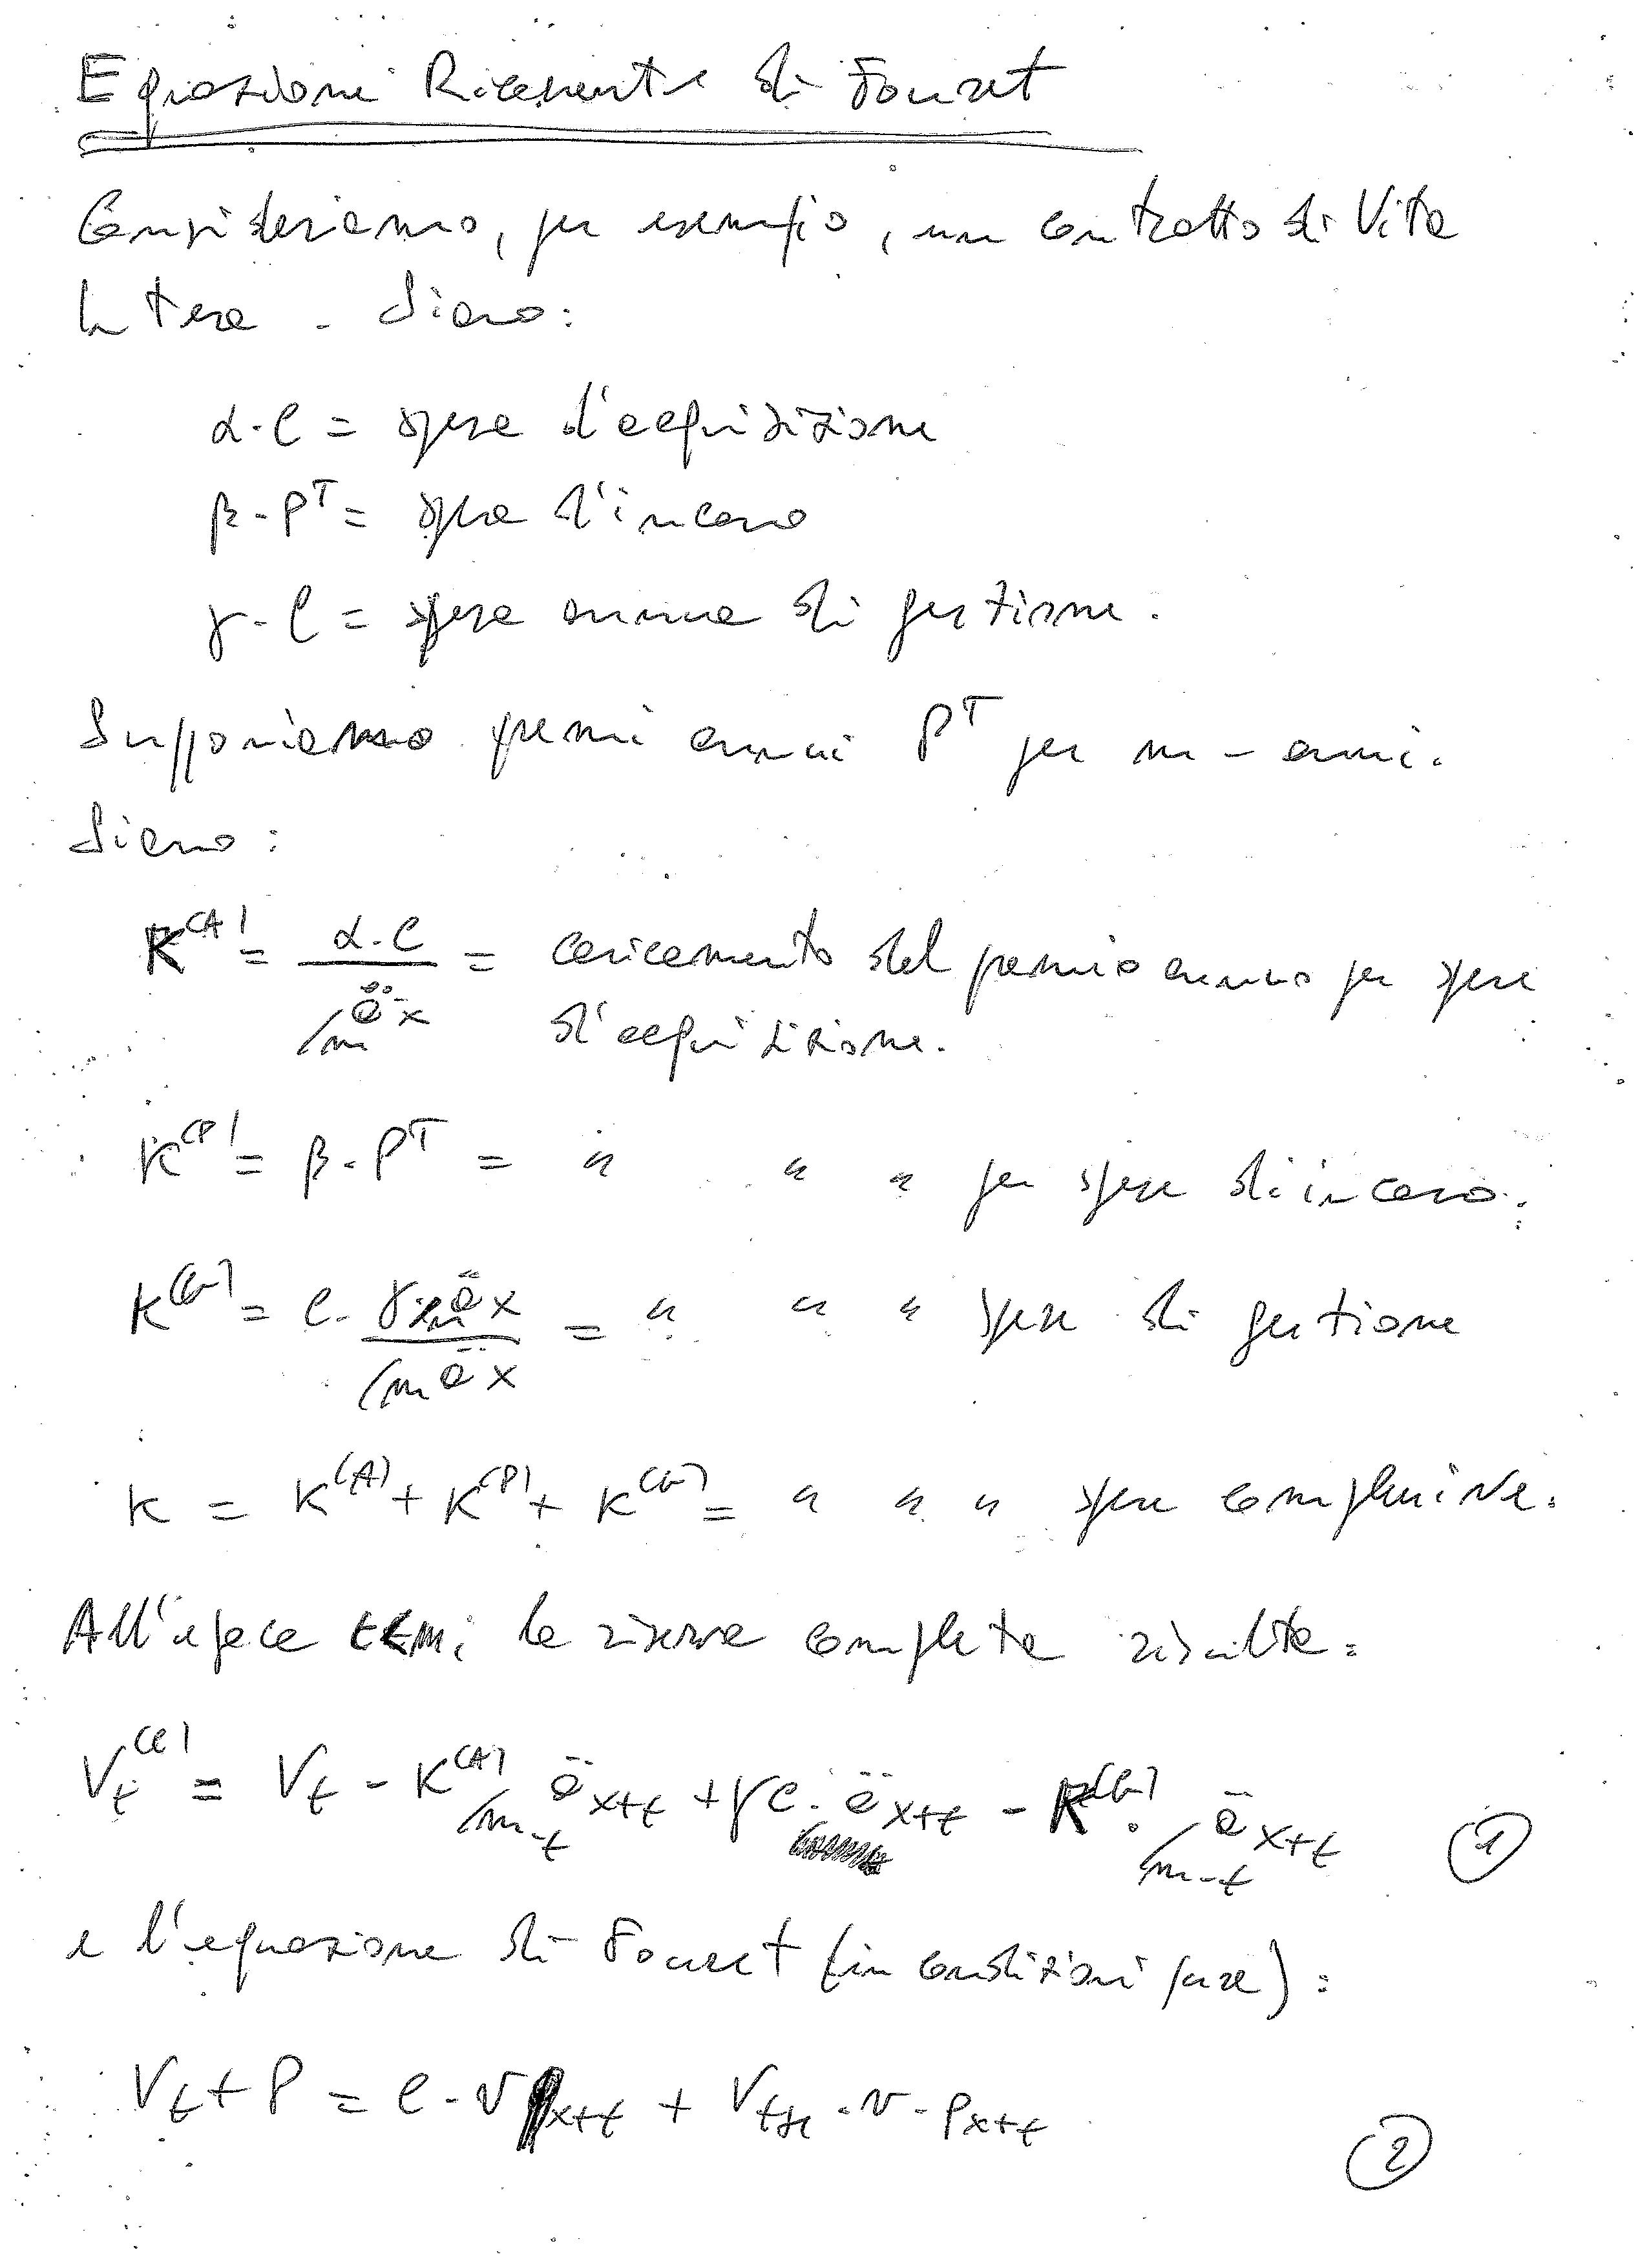 Equazione Ricorrente di Fouret
Consideriamo, per esempio, un contratto di Vita
Intera. Siano:
α·C = spese d'acquisizione
β·P^T = spese d'incasso
γ·C = spese annue di gestione.
Supponiamo premi annui P^T per m-anni.
Siano:
K^(A) = α·C / /m ä x = caricamento del premio annuo per spese
d'acquisizione.
K^(P) = β·P^T = " " " per spese di incasso.
K^(G) = C· γ ä x / /m ä x = " " " spese di gestione
K = K^(A) + K^(P) + K^(G) = " " " spese complessive.
All'epoca t<m, la riserva completa risulta:
V_t^(C) = V_t - K^(A) /m-t ä x+t + γC· ä x+t - K^(G) · /m-t ä x+t (1)
e l'equazione di Fouret (in condizioni pure):
V_t + P = C·v q x+t + V_t+1 · v · p x+t (2)